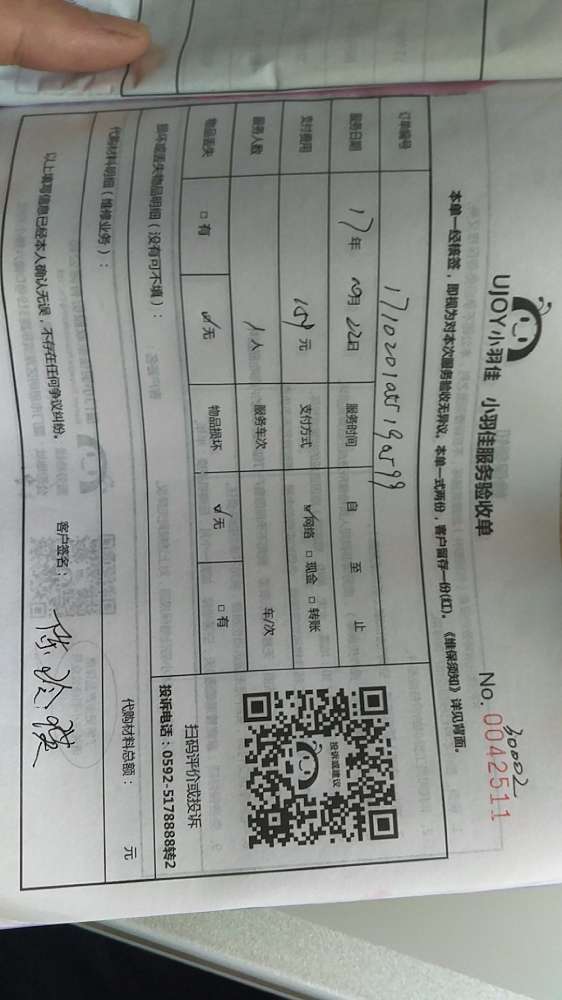 UJOY小羽佳 小羽佳服务验收单
30002
No. 0042511
本单一经核签，即视为对本次服务验收无异议。本单一式两份，客户留存一份(红)。《维保须知》详见背面。
订单编号
服务日期 17年 月22日 服务时间 自 至 止
支付费用 元 支付方式 网络 □ 现金 □ 转账
服务人数 人 服务车次 车/次
物品丢失 □ 有 无 物品损坏 无 □ 有
损坏或丢失物品明细（没有可不填）：
代购材料明细（维修业务）：
代购材料总额： 元
以上填写信息已经本人确认无误，不存在任何争议纠纷。 客户签名：
投诉或建议
扫码评价或投诉
投诉电话：0592-5178888转2